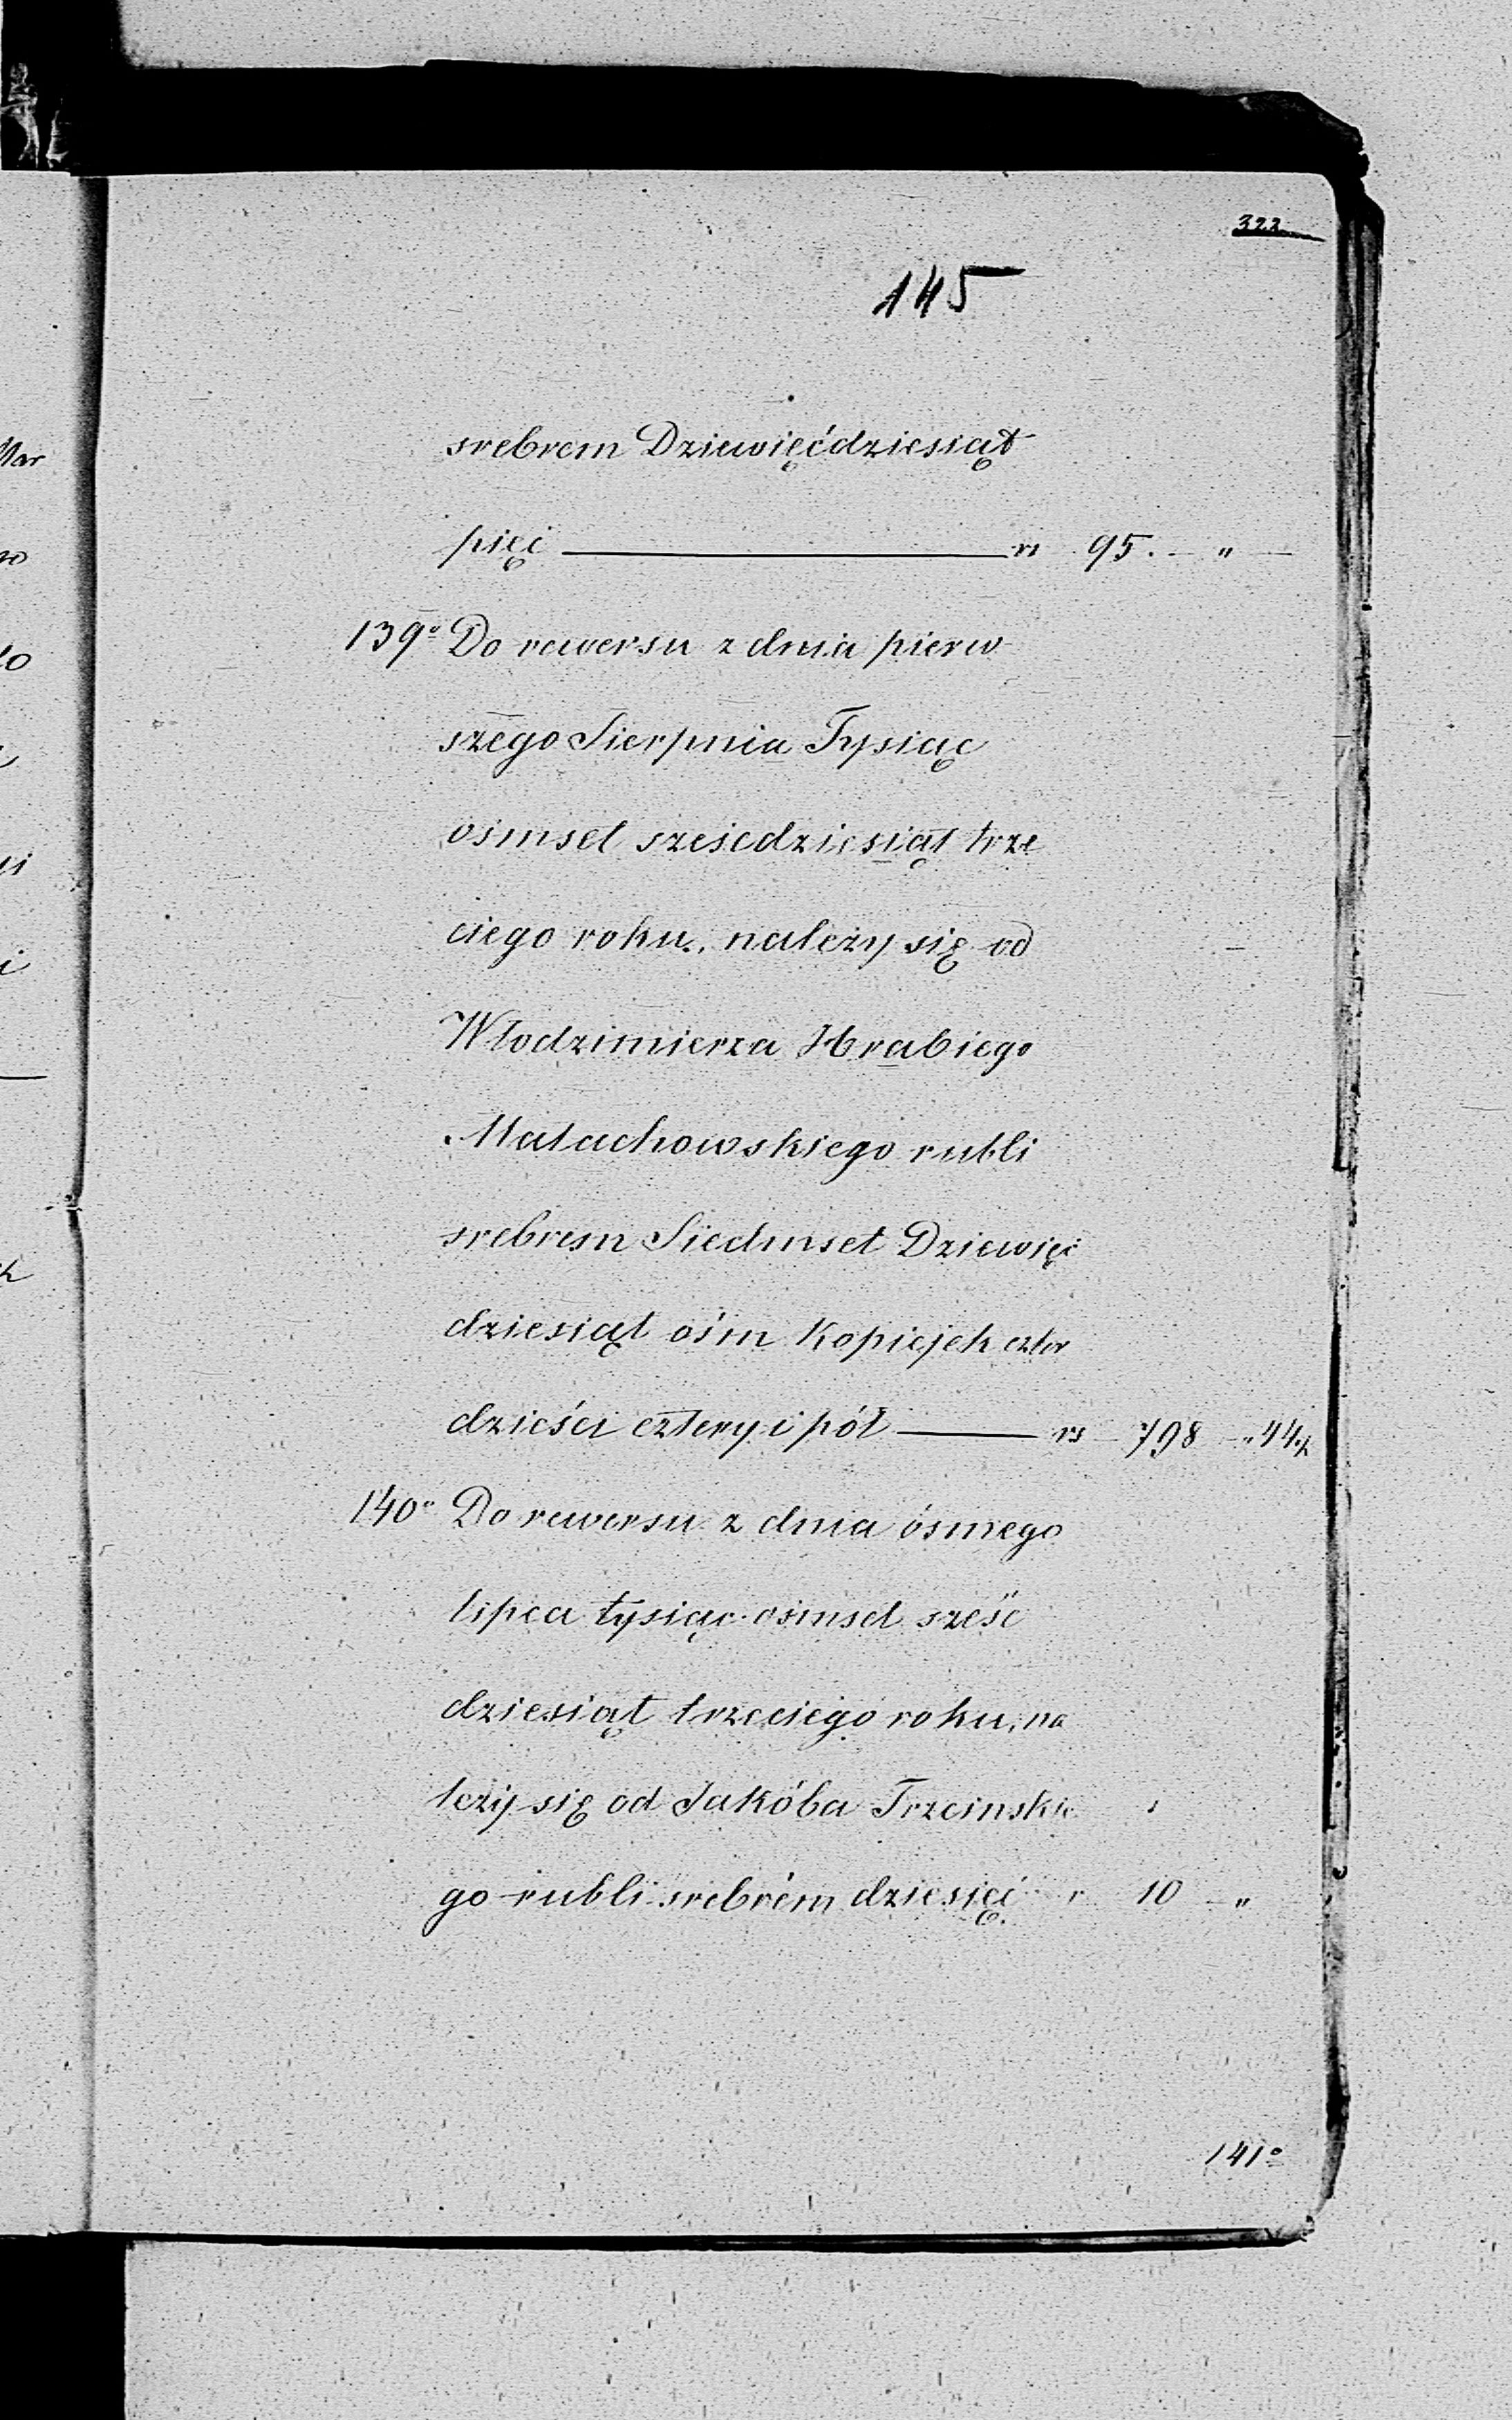 322
145
srebrem Dziewięćdziesiąt
pięć rs 95. — „ —
139° Do rewersu z dnia pierw
szego Sierpnia Tysiąc
ośmset sześcdziesiąt trze
ciego roku, należy się od
Włodzimierza Hrabiego
Małachowskiego rubli
srebrem Siedmset Dziewięć
dziesiąt ośm Kopiejek czter
dzieści cztery i pół rs 798 „ 44½
140° Do rewersu z dnia ósmego
lipca tysiąc ośmset sześć
dziesiąt trzeciego roku, na
leży się od Jakóba Trzcinskie
go rubli srebrem dziesięć r 10 — „
141°